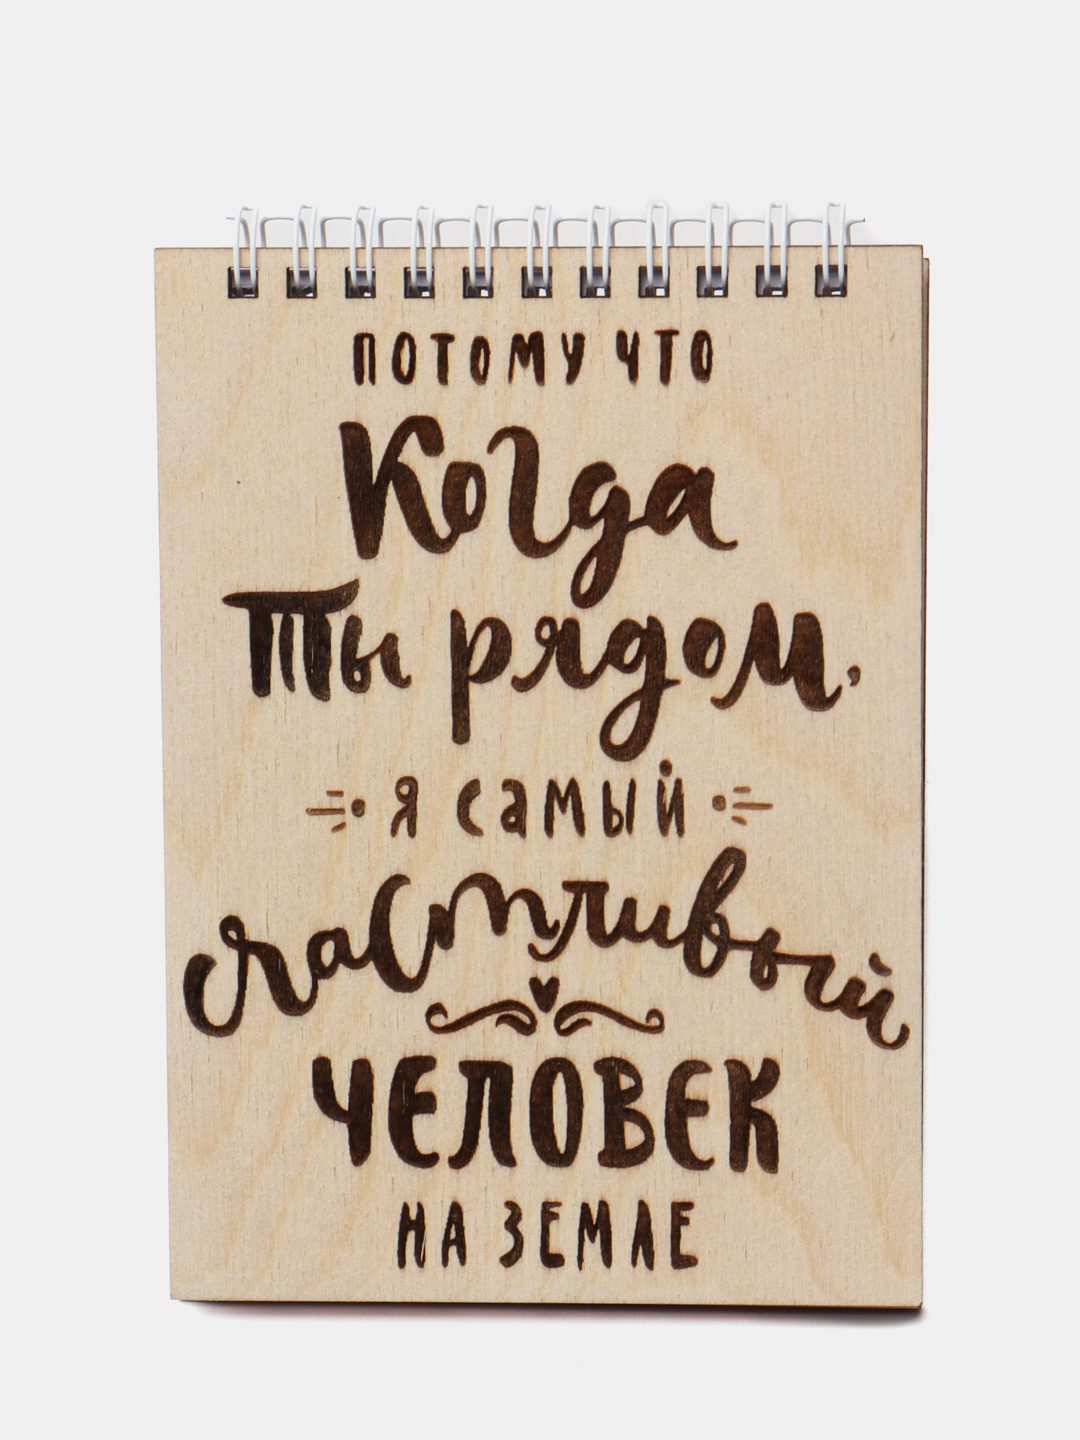 ПОТОМУ ЧТО
Когда
Ты рядом,
я самый
счастливый
ЧЕЛОВЕК
НА ЗЕМЛЕ